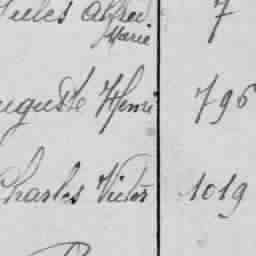 Jules Alfred 7
Marie
uguste Henri 796
Charles Victor 1019